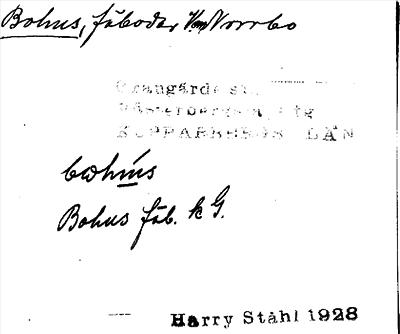 Bohus, fäbodar Norrbo
Grangärde s:n
Västerbergslag tg
KOPPARBERGS LÄN
Bohus fäb. k G.
Harry Ståhl 1928